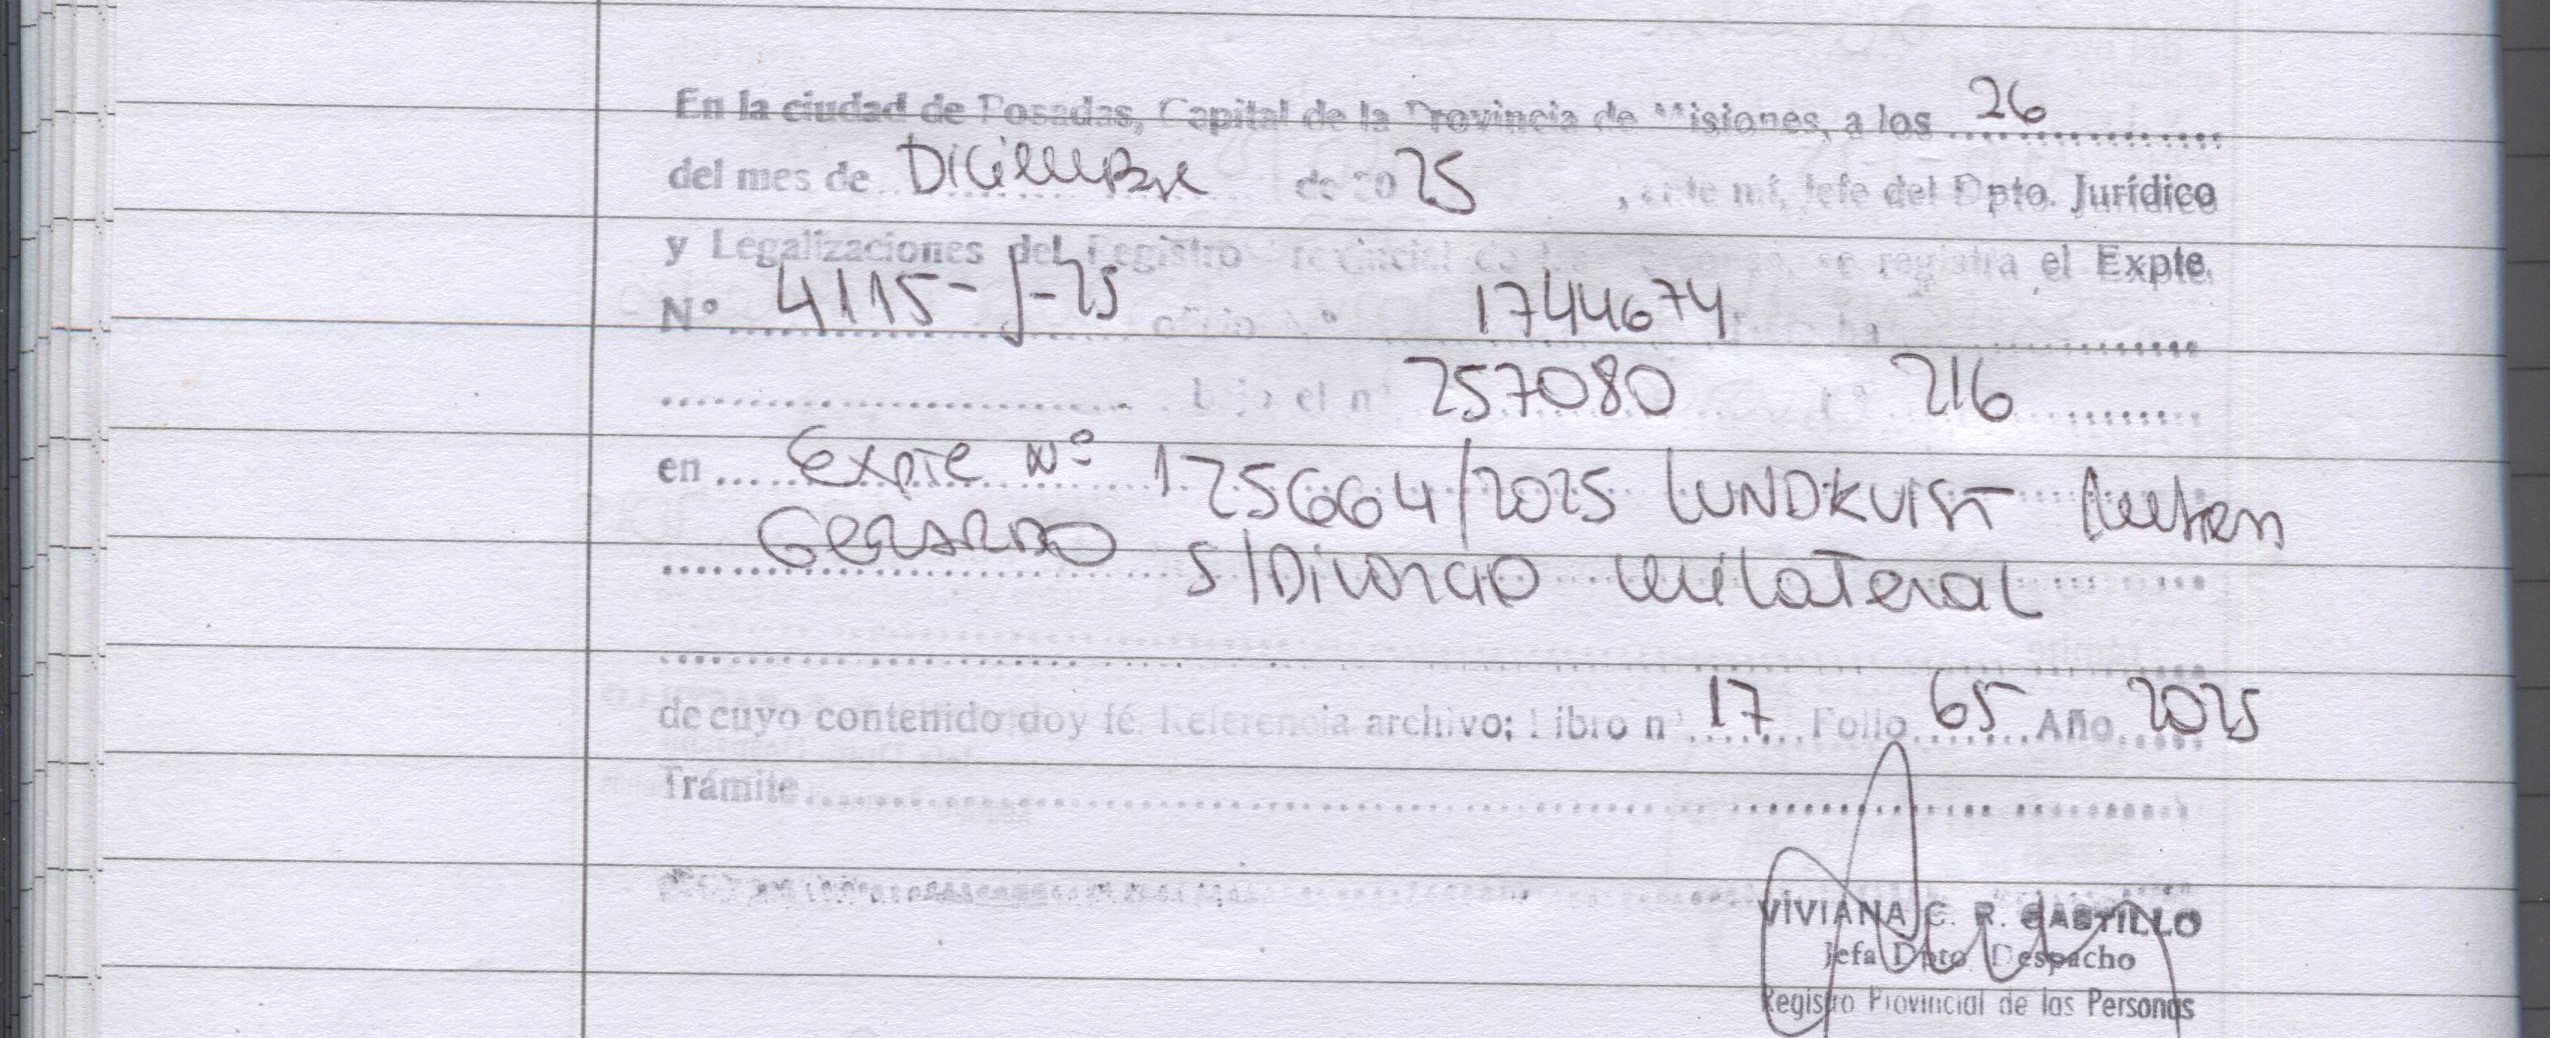 En la ciudad de Posadas, Capital de la Provincia de Misiones, a los 26
del mes de Diciembre de 2025, ante mí, Jefe del Dpto. Jurídico
y Legalizaciones del Registro Provincial de las se registra el Expte.
Nº 4115-J-25 oficio Nº 1744674
bajo el nº 257080 216
en Expte Nº 125664/2025 LUNDKVIST
GERARDO S/Divorcio unilateral
de cuyo contenido doy fé. Referencia archivo; Libro nº 17 Folio 65 Año 2025
Trámite
VIVIANA C. R. CASTILLO
Jefa Dpto. Despacho
Registro Provincial de las Personas